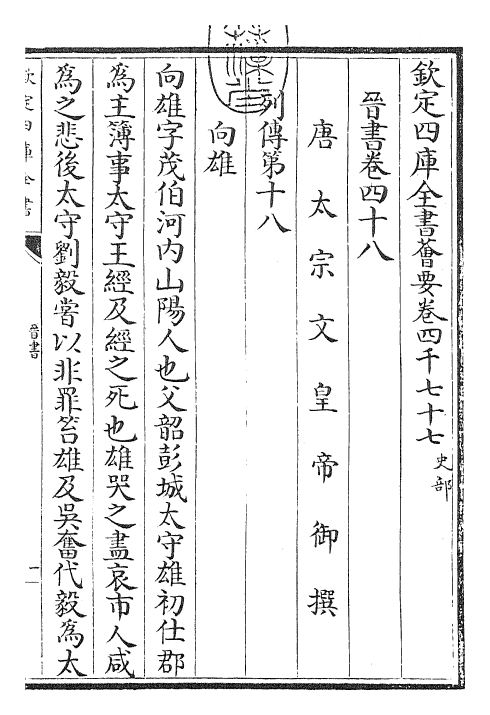 欽定四庫全書薈要卷四千七十七史部
晉書卷四十八
唐太宗文皇帝御撰
列傳第十八
向雄
向雄字茂伯河内山陽人也父韶彭城太守雄初仕郡
為主簿事太守王經及經之死也雄哭之盡哀市人咸
為之悲後太守劉毅嘗以非罪笞雄及吳奮代毅為太
欽定四庫全書
晉書
一